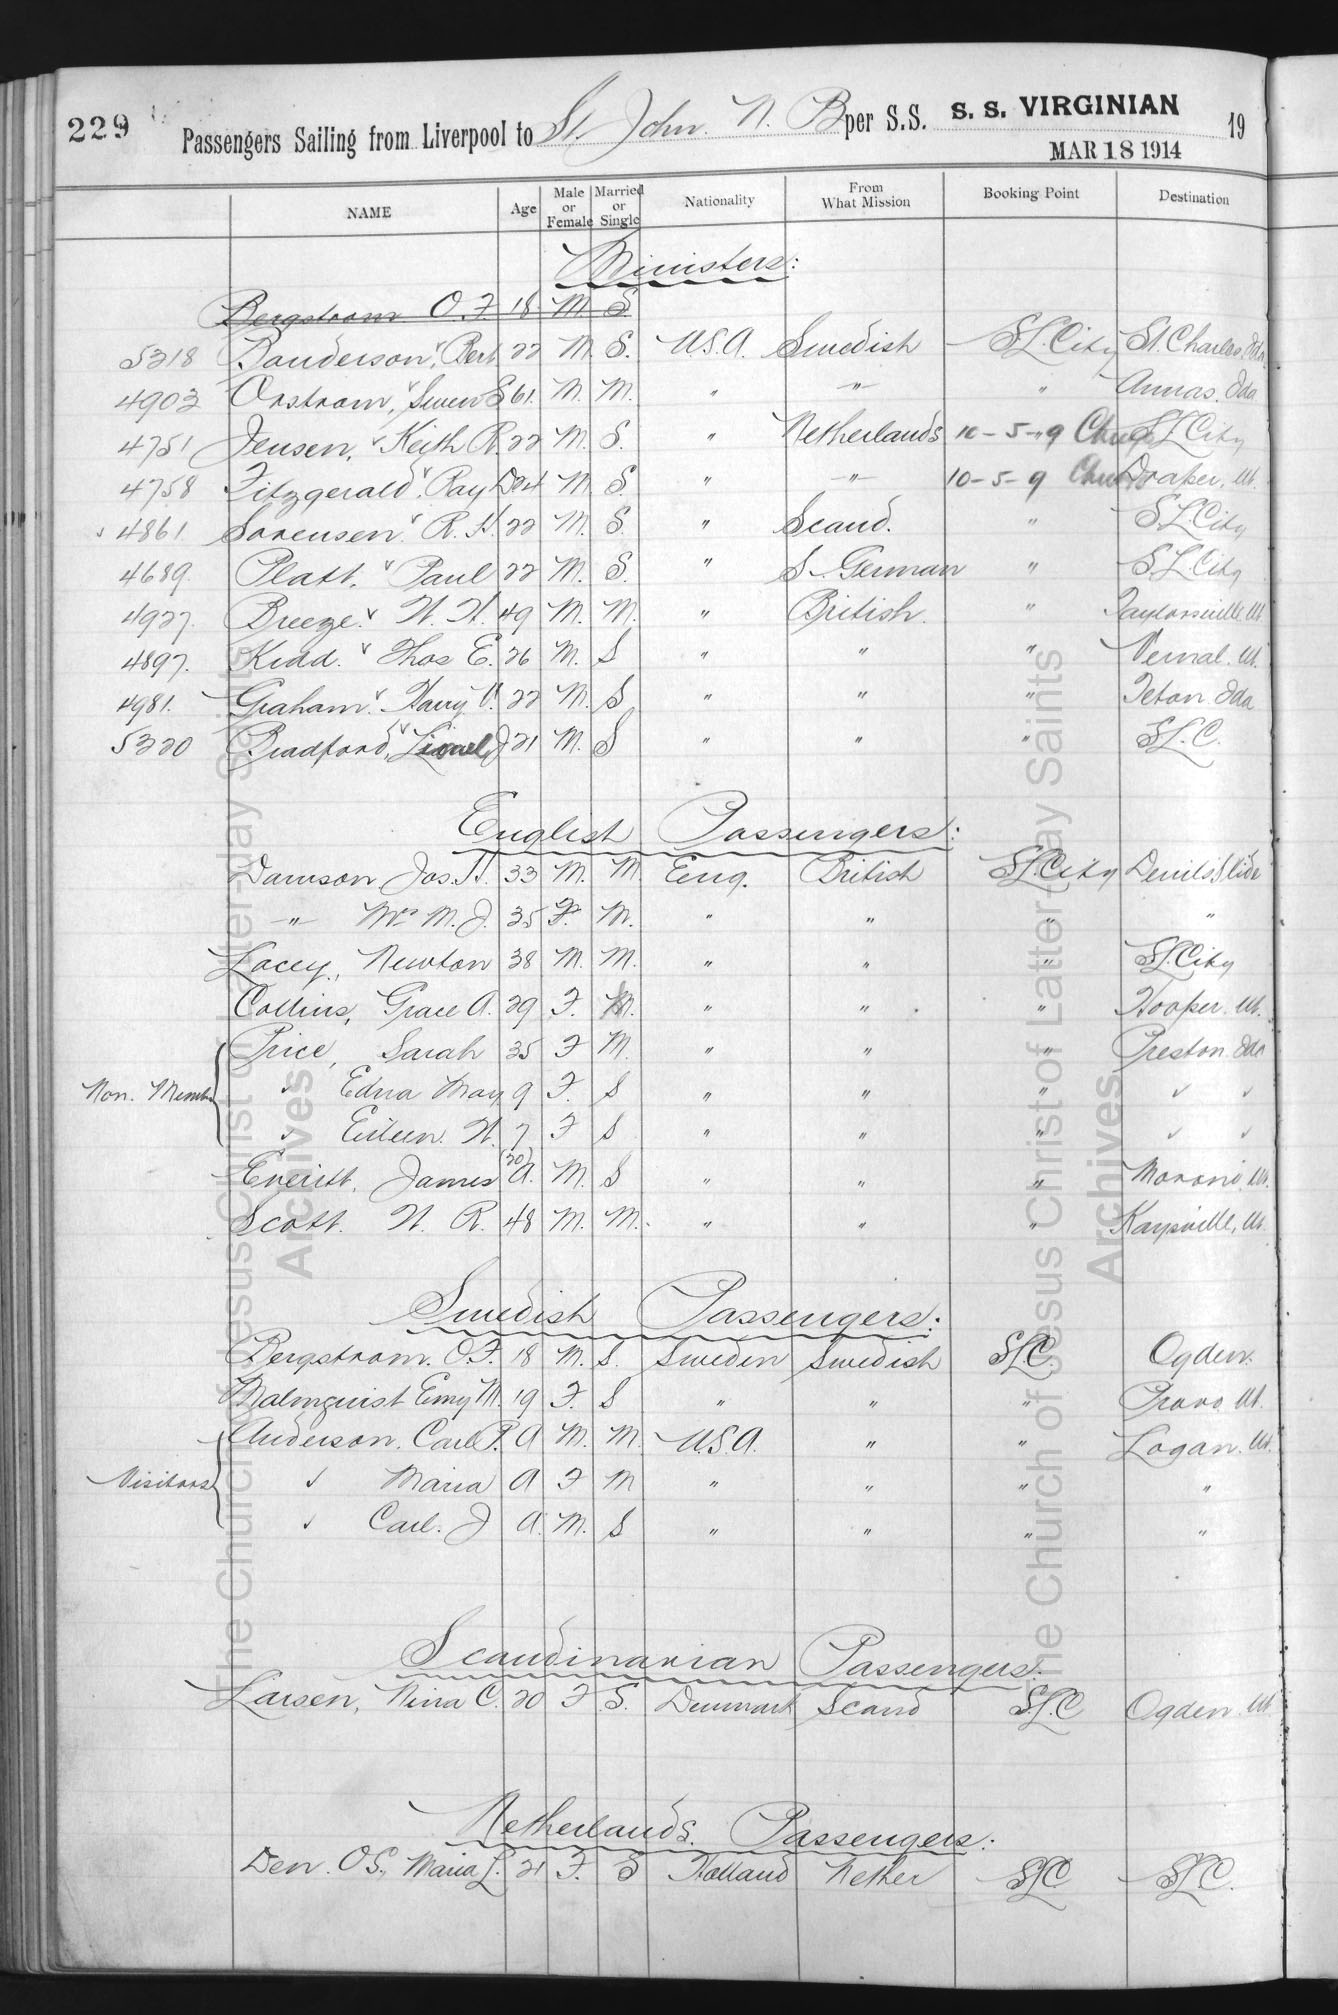 229
Passengers Sailing from Liverpool to St. John. N. B. per S.S. S. S. VIRGINIAN 19
MAR 18 1914
NAME Age Male or Female Married or Single Nationality From What Mission Booking Point Destination
Ministers:
Bergstrom O. F 18 M. S.
5318 Banderson, Bert 22 M. S. U.S.A. Swedish S.L. City St. Charles, Ida
4903 Orstrom, Swen S 61. M. M. " " " Annas. Ida
4751 Jensen, Keith R. 22 M. S. " Netherlands 10-5-9 S.L. City
4758 Fitzgerald, Ray D 24 M. S. " " 10-5-9 Draper, Ut.
4861. Sorensen R. H. 22 M. S. " Scand. " S.L. City
4689. Platt, Paul 22 M. S. " S. German " S.L. City
4927. Breeze. W. H. 49 M. M. " British. " Taylorsville Ut.
4897. Kidd. Thos E. 26 M. S " " " Vernal. Ut.
4981. Graham. Harry V. 22 M. S " " " Teton. Ida
5320 Bradford, Lionel J 21 M. S " " " S.L.C.
English Passengers:
Dawson Jos. H. 33 M. M. Eng. British S.L. City Devils Slide
" Mrs M. J. 35 F. M. " " " "
Lacey, Newton 38 M. M. " " " S.L. City
Collins, Grace A. 29 F. M. " " " Hooper. Ut.
Price, Sarah 35 F M. " " " Preston. Ida
Non. Memb. ✓ Edna May 9 F. S " " " ✓ ✓
✓ Eileen. W. 7 F S " " " ✓ ✓
Everitt, James (20) A. M. S " " " Moroni, Ut.
Scott. W. R. 48 M. M. " " " Kaysville, Ut.
Swedish Passengers:
Bergstrom. O.F. 18 M. S. Sweden Swedish S.L.C. Ogden.
Malmquist Emy M. 19 F. S " " " Provo Ut.
Anderson. Carl P. A M. M. U.S.A. " " Logan. Ut.
Visitors ✓ Maria A F M " " " "
✓ Carl. J A. M. S " " " "
Scandinavian Passengers:
Larsen, Nina C. 20 F S. Denmark Scand S.L.C Ogden. Ut
Netherlands. Passengers:
Den. OS, Maria L. 21 F. S Holland Nether S.L.C S.L.C.
The Church of Jesus Christ of Latter-day Saints
Archives
The Church of Jesus Christ of Latter-day Saints
Archives